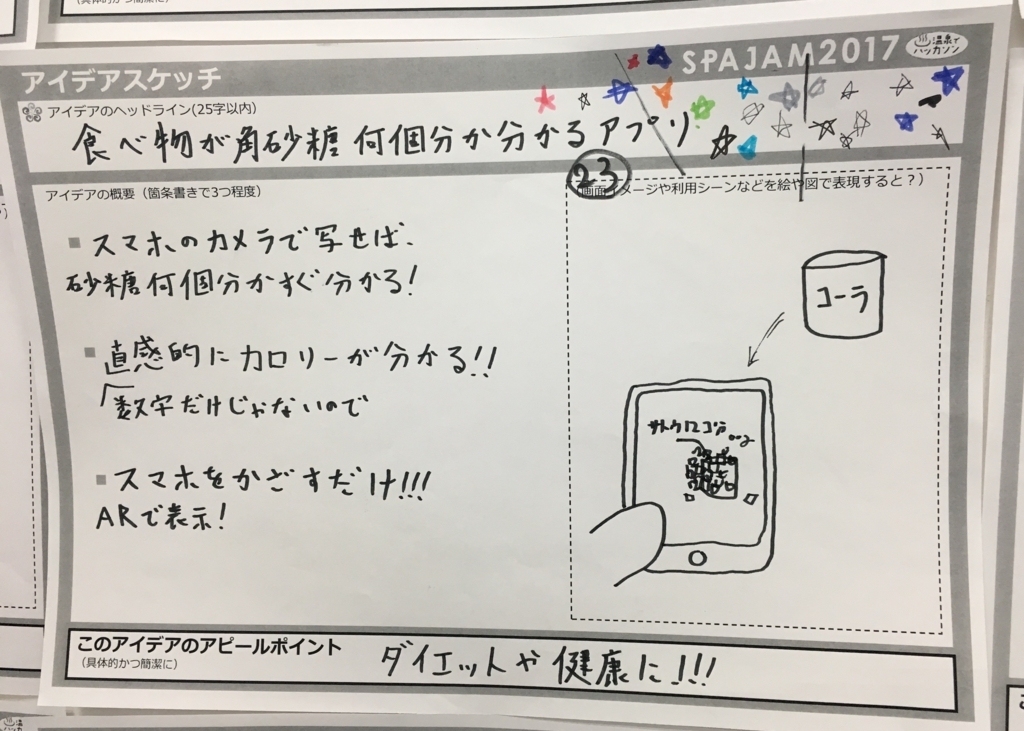 (具体的かつ簡潔に)
SPAJAM2017
温泉でハッカソン
アイデアスケッチ
アイデアのヘッドライン(25字以内)
食べ物が角砂糖何個分か分かるアプリ
アイデアの概要（箇条書きで3つ程度）
23
画面イメージや利用シーンなどを絵や図で表現すると？）
■ スマホのカメラで写せば、
砂糖何個分かすぐ分かる！
■ 直感的にカロリーが分かる!!
数字だけじゃないので
■ スマホをかざすだけ!!!
ARで表示！
コーラ
サトウ12コ分
このアイデアのアピールポイント
（具体的かつ簡潔に）
ダイエットや健康に!!!